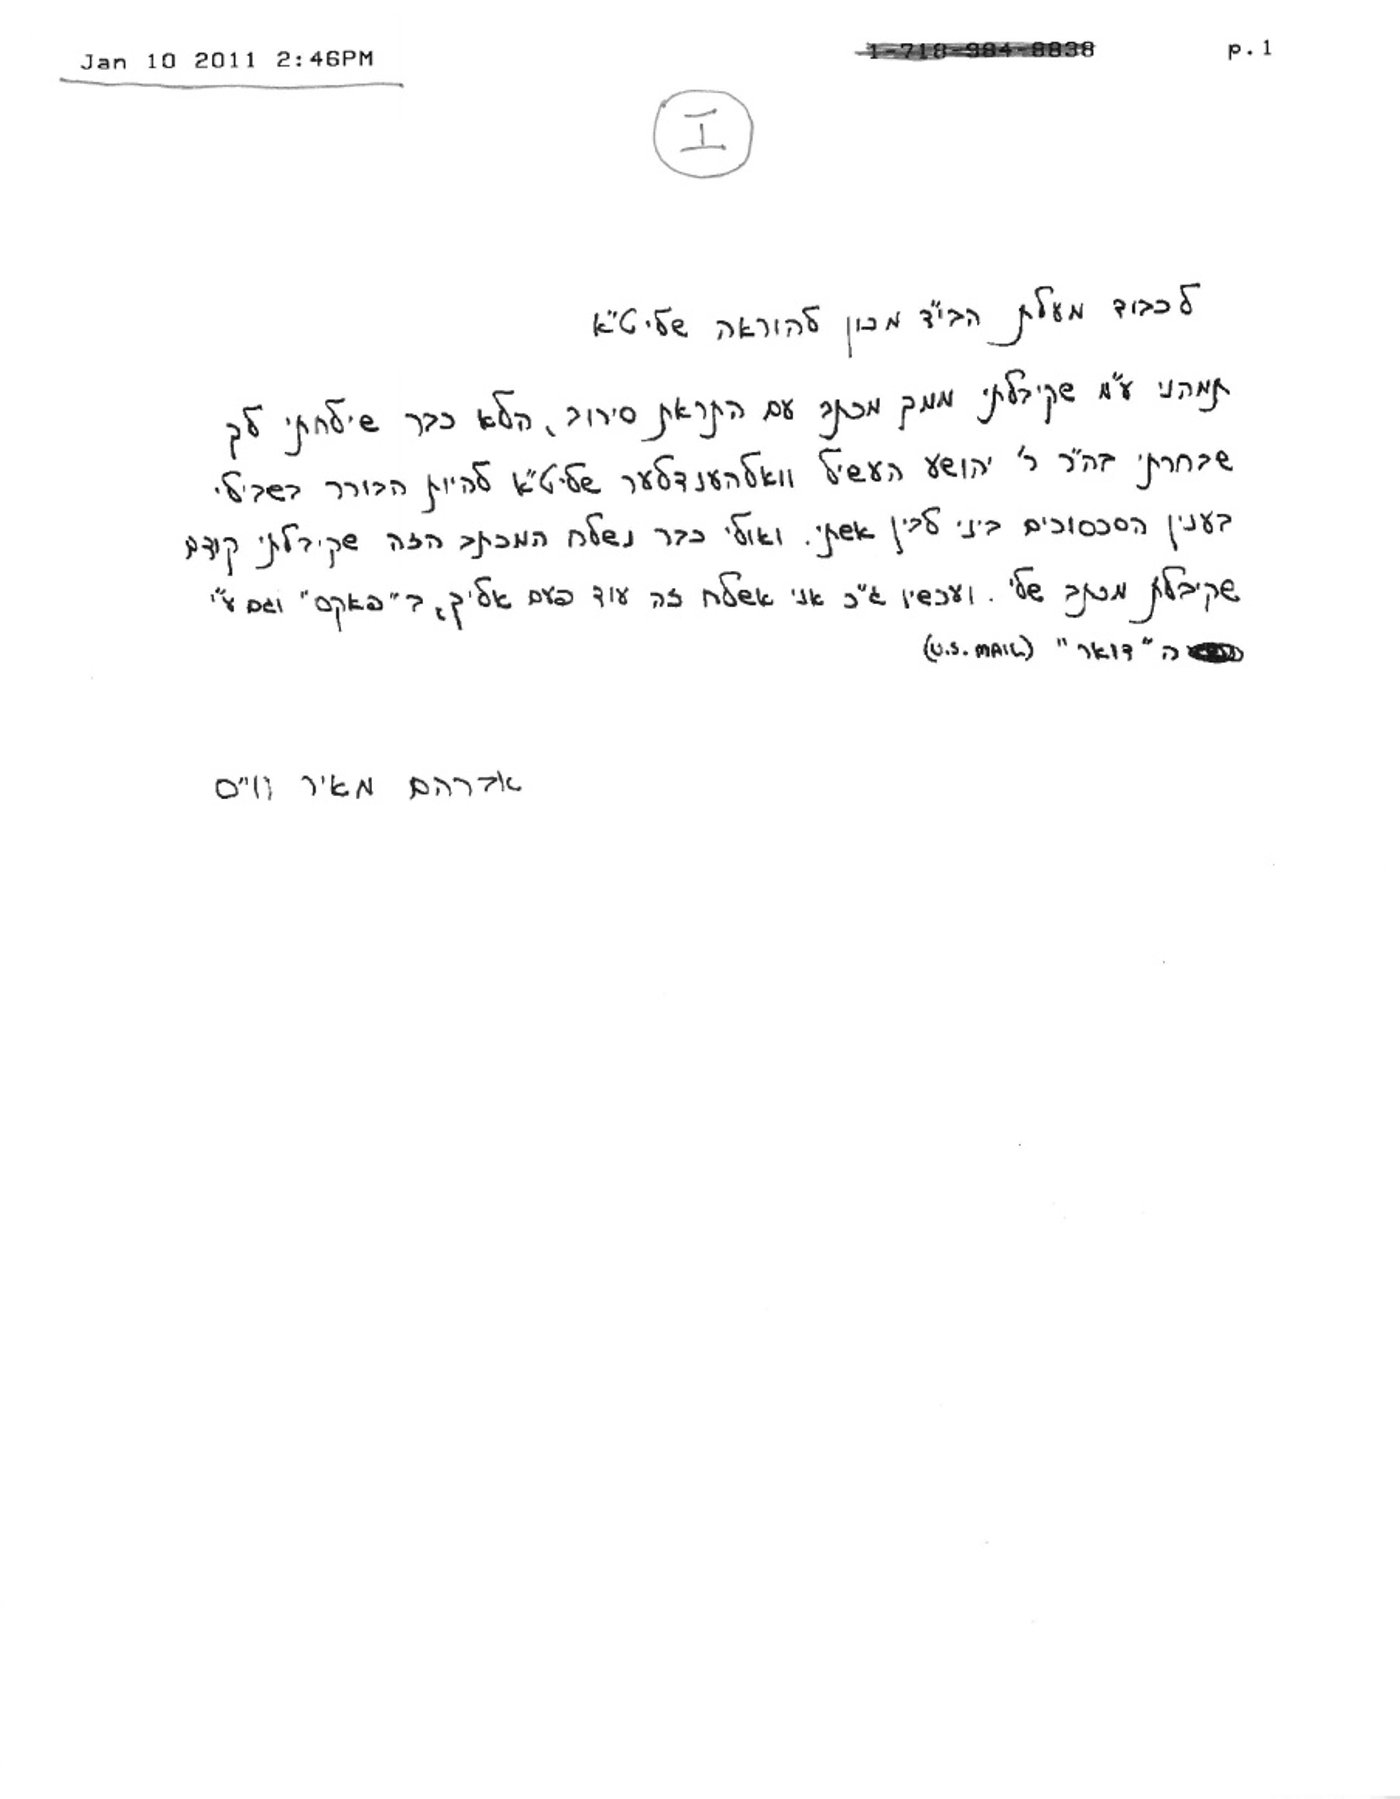 Jan 10 2011 2:46PM 1-718-984-8838 p.1
I
לכבוד מעלת הבי"ד מכון להוראה שליט"א
תמהני ע"מ שקיבלתי ממך מכתב עם התראת סירוב, הלא כבר שילחתי לך
שבחרתי בה"ר ר' יהושע העשיל וואלהענדלער שליט"א להיות הבורר בשבילי
בענין הסכסוכים ביני לבין אשתי. ואולי כבר נשלח המכתב הזה שקיבלתי קודם
שקיבלת מכתב שלי. ועכשיו ג"כ אני אשלח זה עוד פעם אליך, ב"פאקס" וגם ע"י
ה"דואר" (U.S. MAIL)
אברהם מאיר ווייס